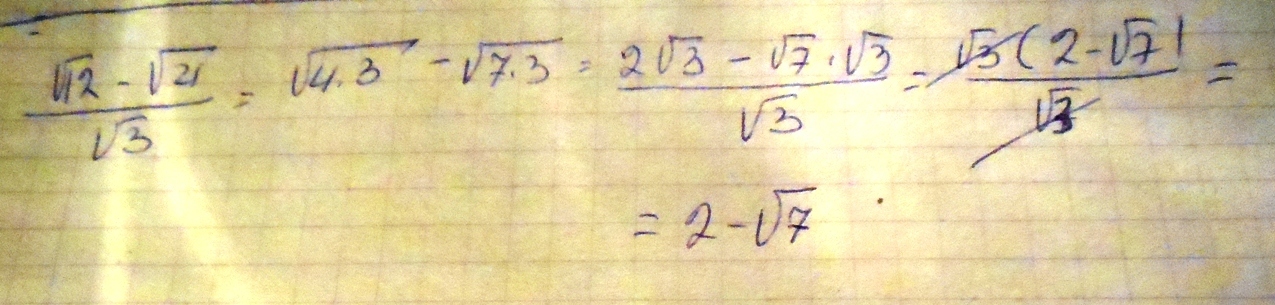 (√12 - √21)/√3 = √4·3 - √7·3 = (2√3 - √7·√3)/√3 = √3(2-√7)/√3 =
= 2-√7